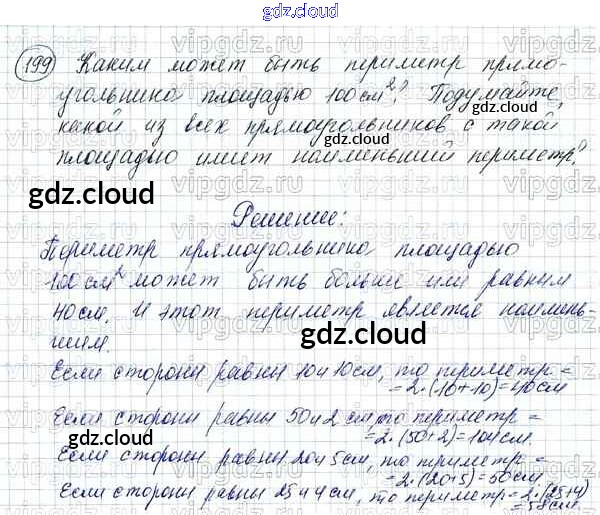 gdz.cloud
199 Каким может быть периметр прямо-
угольника площадью 100 см²? Подумайте,
какой из всех прямоугольников с такой
площадью имеет наименьший периметр?
gdz.cloud
gdz.cloud
Решение:
Периметр прямоугольника площадью
100 см² может быть больше или равным
40 см. И этот периметр является наимень-
шим.
gdz.cloud
Если стороны равны 10 и 10 см, то периметр =
= 2·(10+10)=40 см
Если стороны равны 50 и 2 см, то периметр =
= 2·(50+2)=104 см.
Если стороны равны 20 и 5 см, то периметр =
= 2·(20+5)=50 см.
Если стороны равны 25 и 4 см, то периметр = 2·(25+4)
= 58 см.
gdz.cloud
gdz.cloud